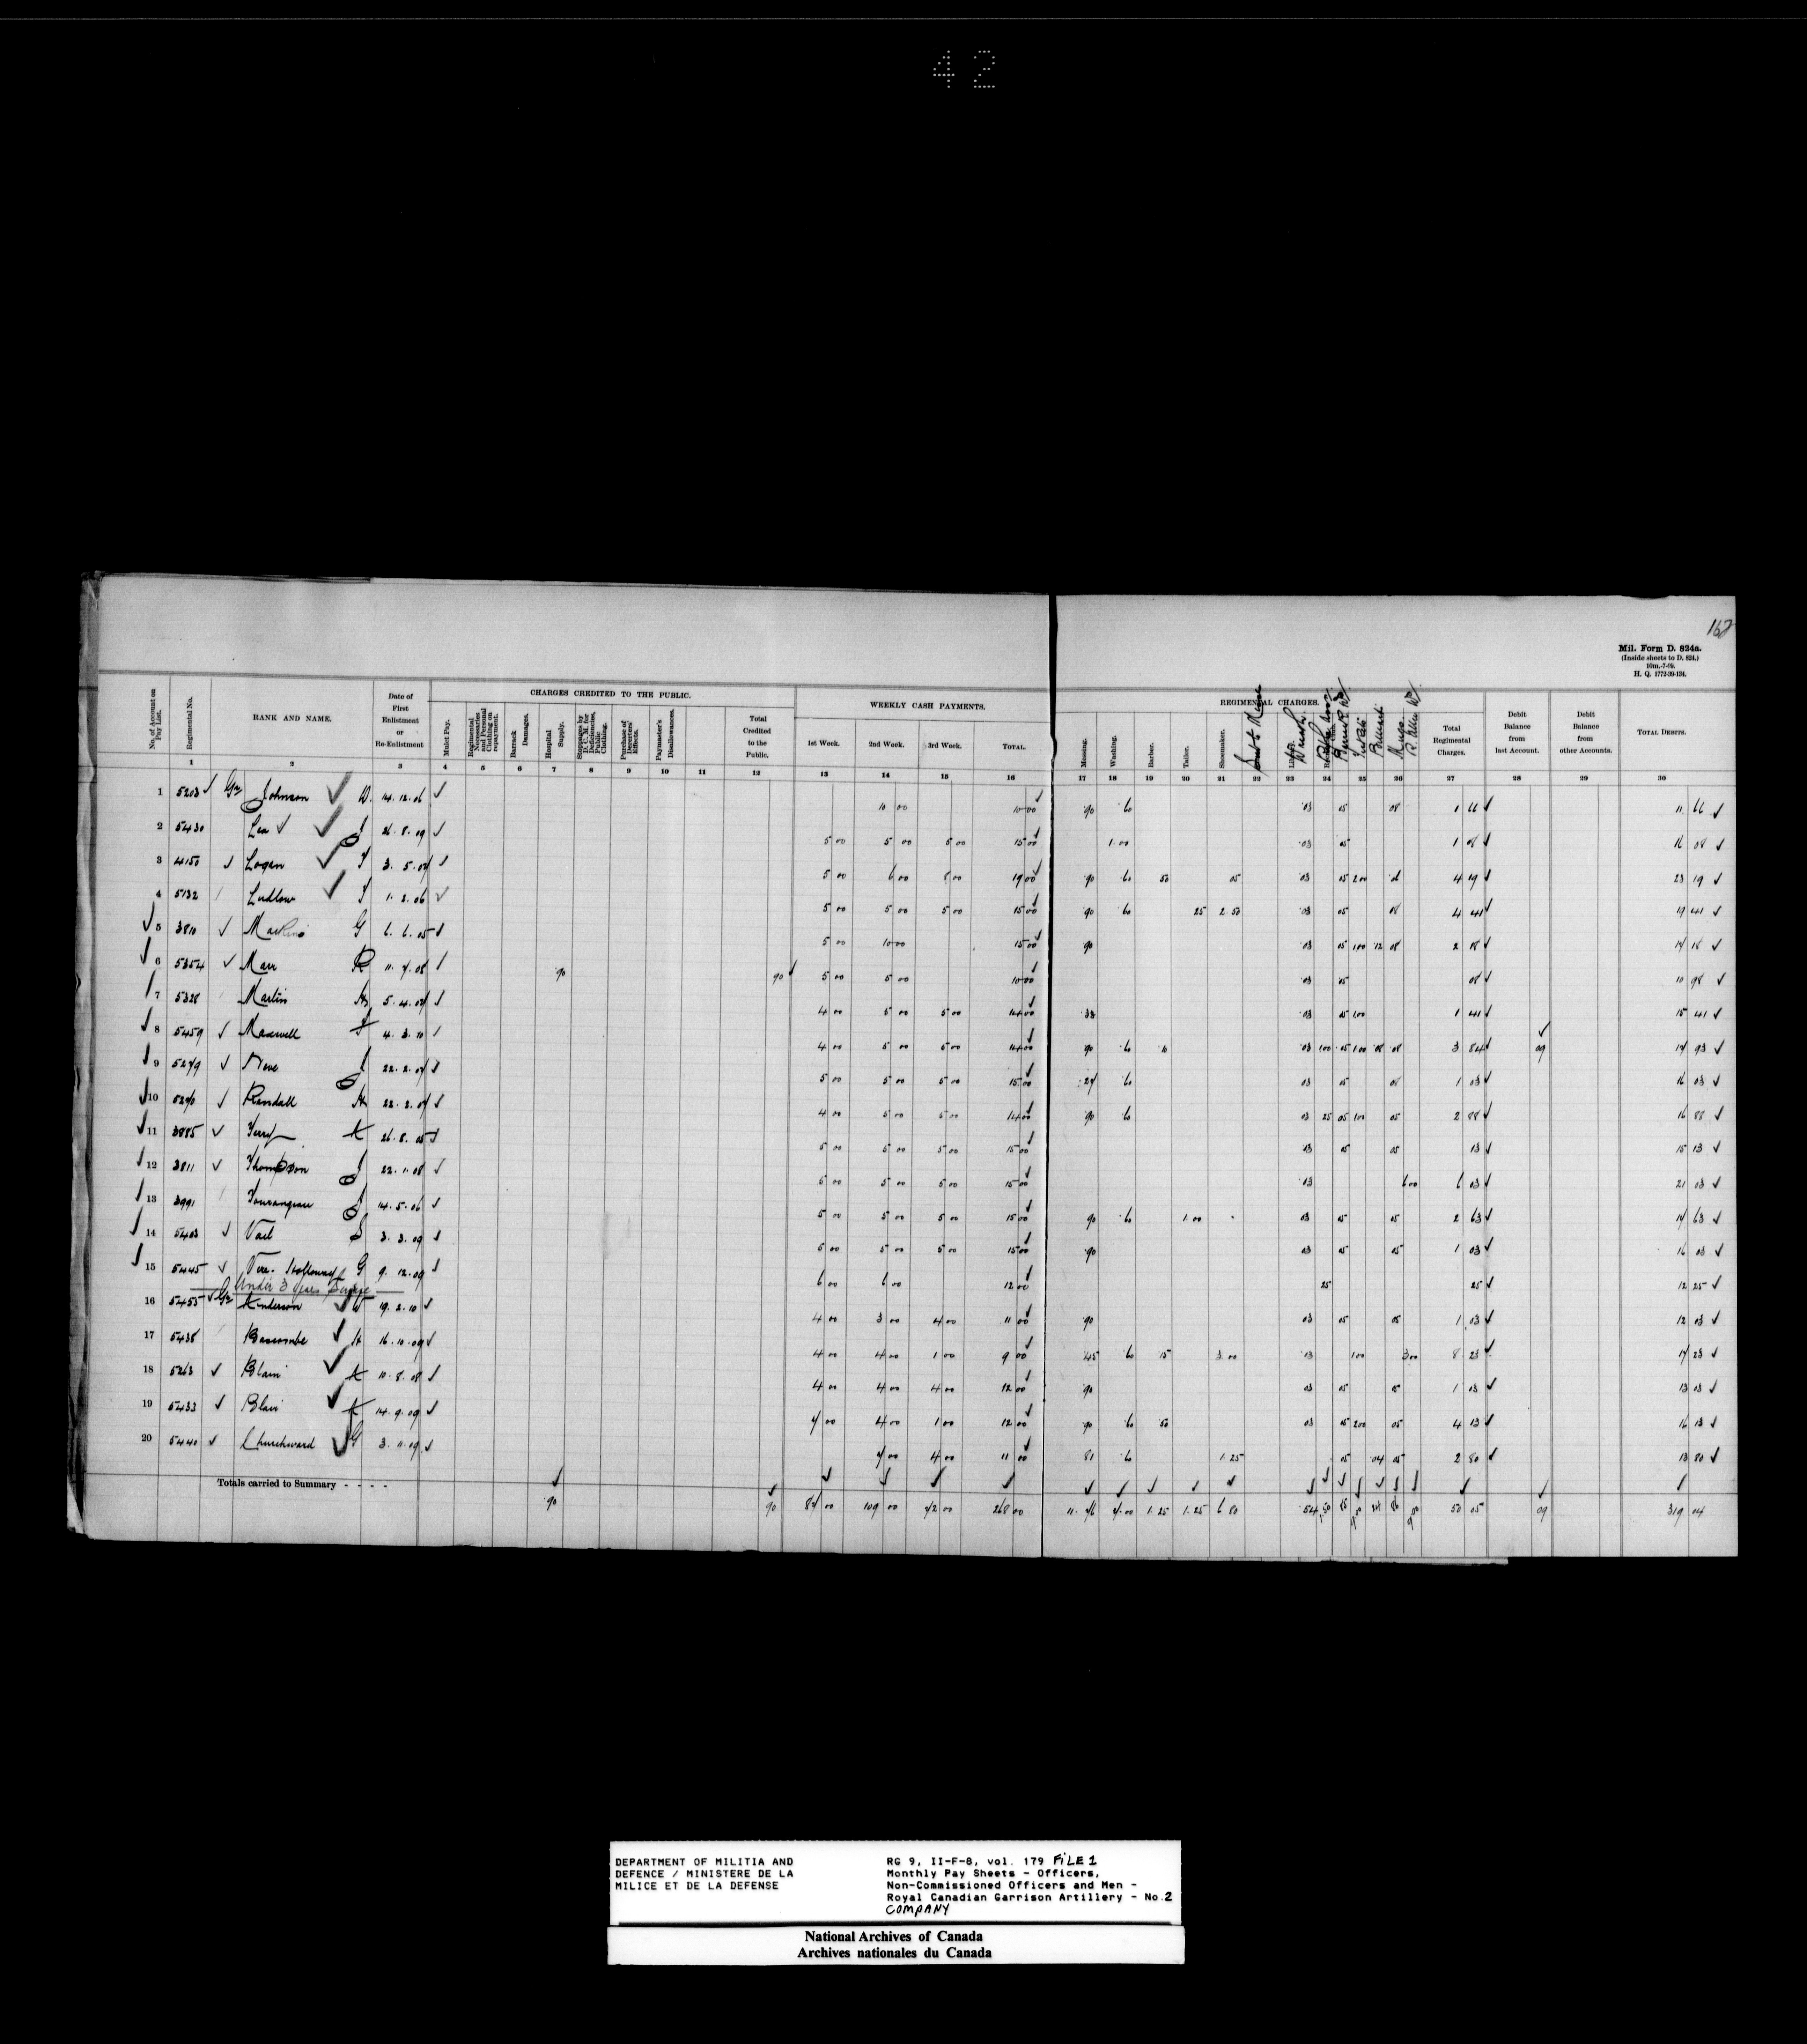 42
162
Mil. Form D. 824a.
(Inside sheets to D. 824.)
10m.-7-09.
H. Q. 1772-39-134.
No. of Account on Pay List.
Regimental No.
RANK AND NAME.
Date of First Enlistment or Re-Enlistment
CHARGES CREDITED TO THE PUBLIC.
Mulct Pay.
Regimental Necessaries and Personal Clothing on repayment.
Barrack Damages.
Hospital Supply.
Stoppages by D. C. M. for Deficiencies, Public Clothing.
Purchase of Deserters' Effects.
Paymaster's Disallowances.
Total Credited to the Public.
WEEKLY CASH PAYMENTS.
1st Week. 2nd Week. 3rd Week. TOTAL.
REGIMENTAL CHARGES.
Messing. Washing. Barber. Tailor. Shoemaker.
Total Regimental Charges.
Debit Balance from last Account.
Debit Balance from other Accounts.
TOTAL DEBITS.
1 2 3 4 5 6 7 8 9 10 11 12 13 14 15 16 17 18 19 20 21 22 23 24 25 26 27 28 29 30
1 5203 Gr Johnson W. 14.12.06 10 00 10 00 90 60 03 05 08 1 66 11 66
2 5430 Lea J 26.8.09 5 00 5 00 5 00 15 00 1.00 03 05 1 08 16 08
3 4150 Logan T 3.5.07 5 00 6 00 8 00 19 00 90 60 50 05 03 05 2 00 06 4 19 23 19
4 5132 Ludlow T 1.2.06 5 00 5 00 5 00 15 00 90 60 25 2.50 03 05 08 4 41 19 41
5 3810 G 6.6.05 5 00 10 00 15 00 90 03 05 1 00 12 08 2 18 17 18
6 5354 Marr R 11.7.08 90 90 5 00 5 00 10 00 03 05 08 10 98
7 5328 Martin 5.4.07 4 00 5 00 5 00 14 00 33 03 05 1 00 1 41 15 41
8 5459 Maxwell 4.3.10 4 00 5 00 5 00 14 00 90 60 10 03 1 00 05 1 00 08 08 3 84 09 17 93
9 5279 J 22.2.07 5 00 5 00 5 00 15 00 27 60 03 05 08 1 03 16 03
10 Randall H 22.2.07 4 00 5 00 5 00 14 00 90 60 03 25 05 1 00 05 2 88 16 88
11 3885 Terry A 26.8.05 5 00 5 00 5 00 15 00 03 05 05 13 15 13
12 3811 Thompson J 22.1.08 5 00 5 00 5 00 15 00 03 6 00 6 03 21 03
13 3991 J 14.5.06 5 00 5 00 5 00 15 00 90 60 1.00 03 05 05 2 63 17 63
14 5403 Vail S 3.3.09 5 00 5 00 5 00 15 00 90 03 05 05 1 03 16 03
15 5445 Vere-Holloway G 9.12.09 6 00 6 00 12 00 25 25 12 25
Under 3 years Service
16 5455 Gr Anderson W 19.2.10 4 00 3 00 4 00 11 00 90 03 05 05 1 03 12 03
17 5438 Bascombe H 16.10.09 4 00 4 00 1 00 9 00 45 60 15 3 00 03 1 00 3 00 8 23 17 23
18 5263 Blain A 10.8.08 4 00 4 00 4 00 12 00 90 03 05 05 1 03 13 03
19 5433 Blair A 14.9.09 7 00 4 00 1 00 12 00 90 60 50 03 05 2 00 05 4 13 16 13
20 5440 Churchward G 3.11.09 7 00 4 00 11 00 81 60 1.25 05 04 05 2 80 13 80
Totals carried to Summary - - - - 90 90 87 00 109 00 72 00 268 00 11.76 7.00 1.25 1.25 6 80 54 50 05 09 319 04
DEPARTMENT OF MILITIA AND
DEFENCE / MINISTERE DE LA
MILICE ET DE LA DEFENSE
RG 9, II-F-8, vol. 179 FiLE 1
Monthly Pay Sheets - Officers,
Non-Commissioned Officers and Men -
Royal Canadian Garrison Artillery - No.2
COMPANY
National Archives of Canada
Archives nationales du Canada